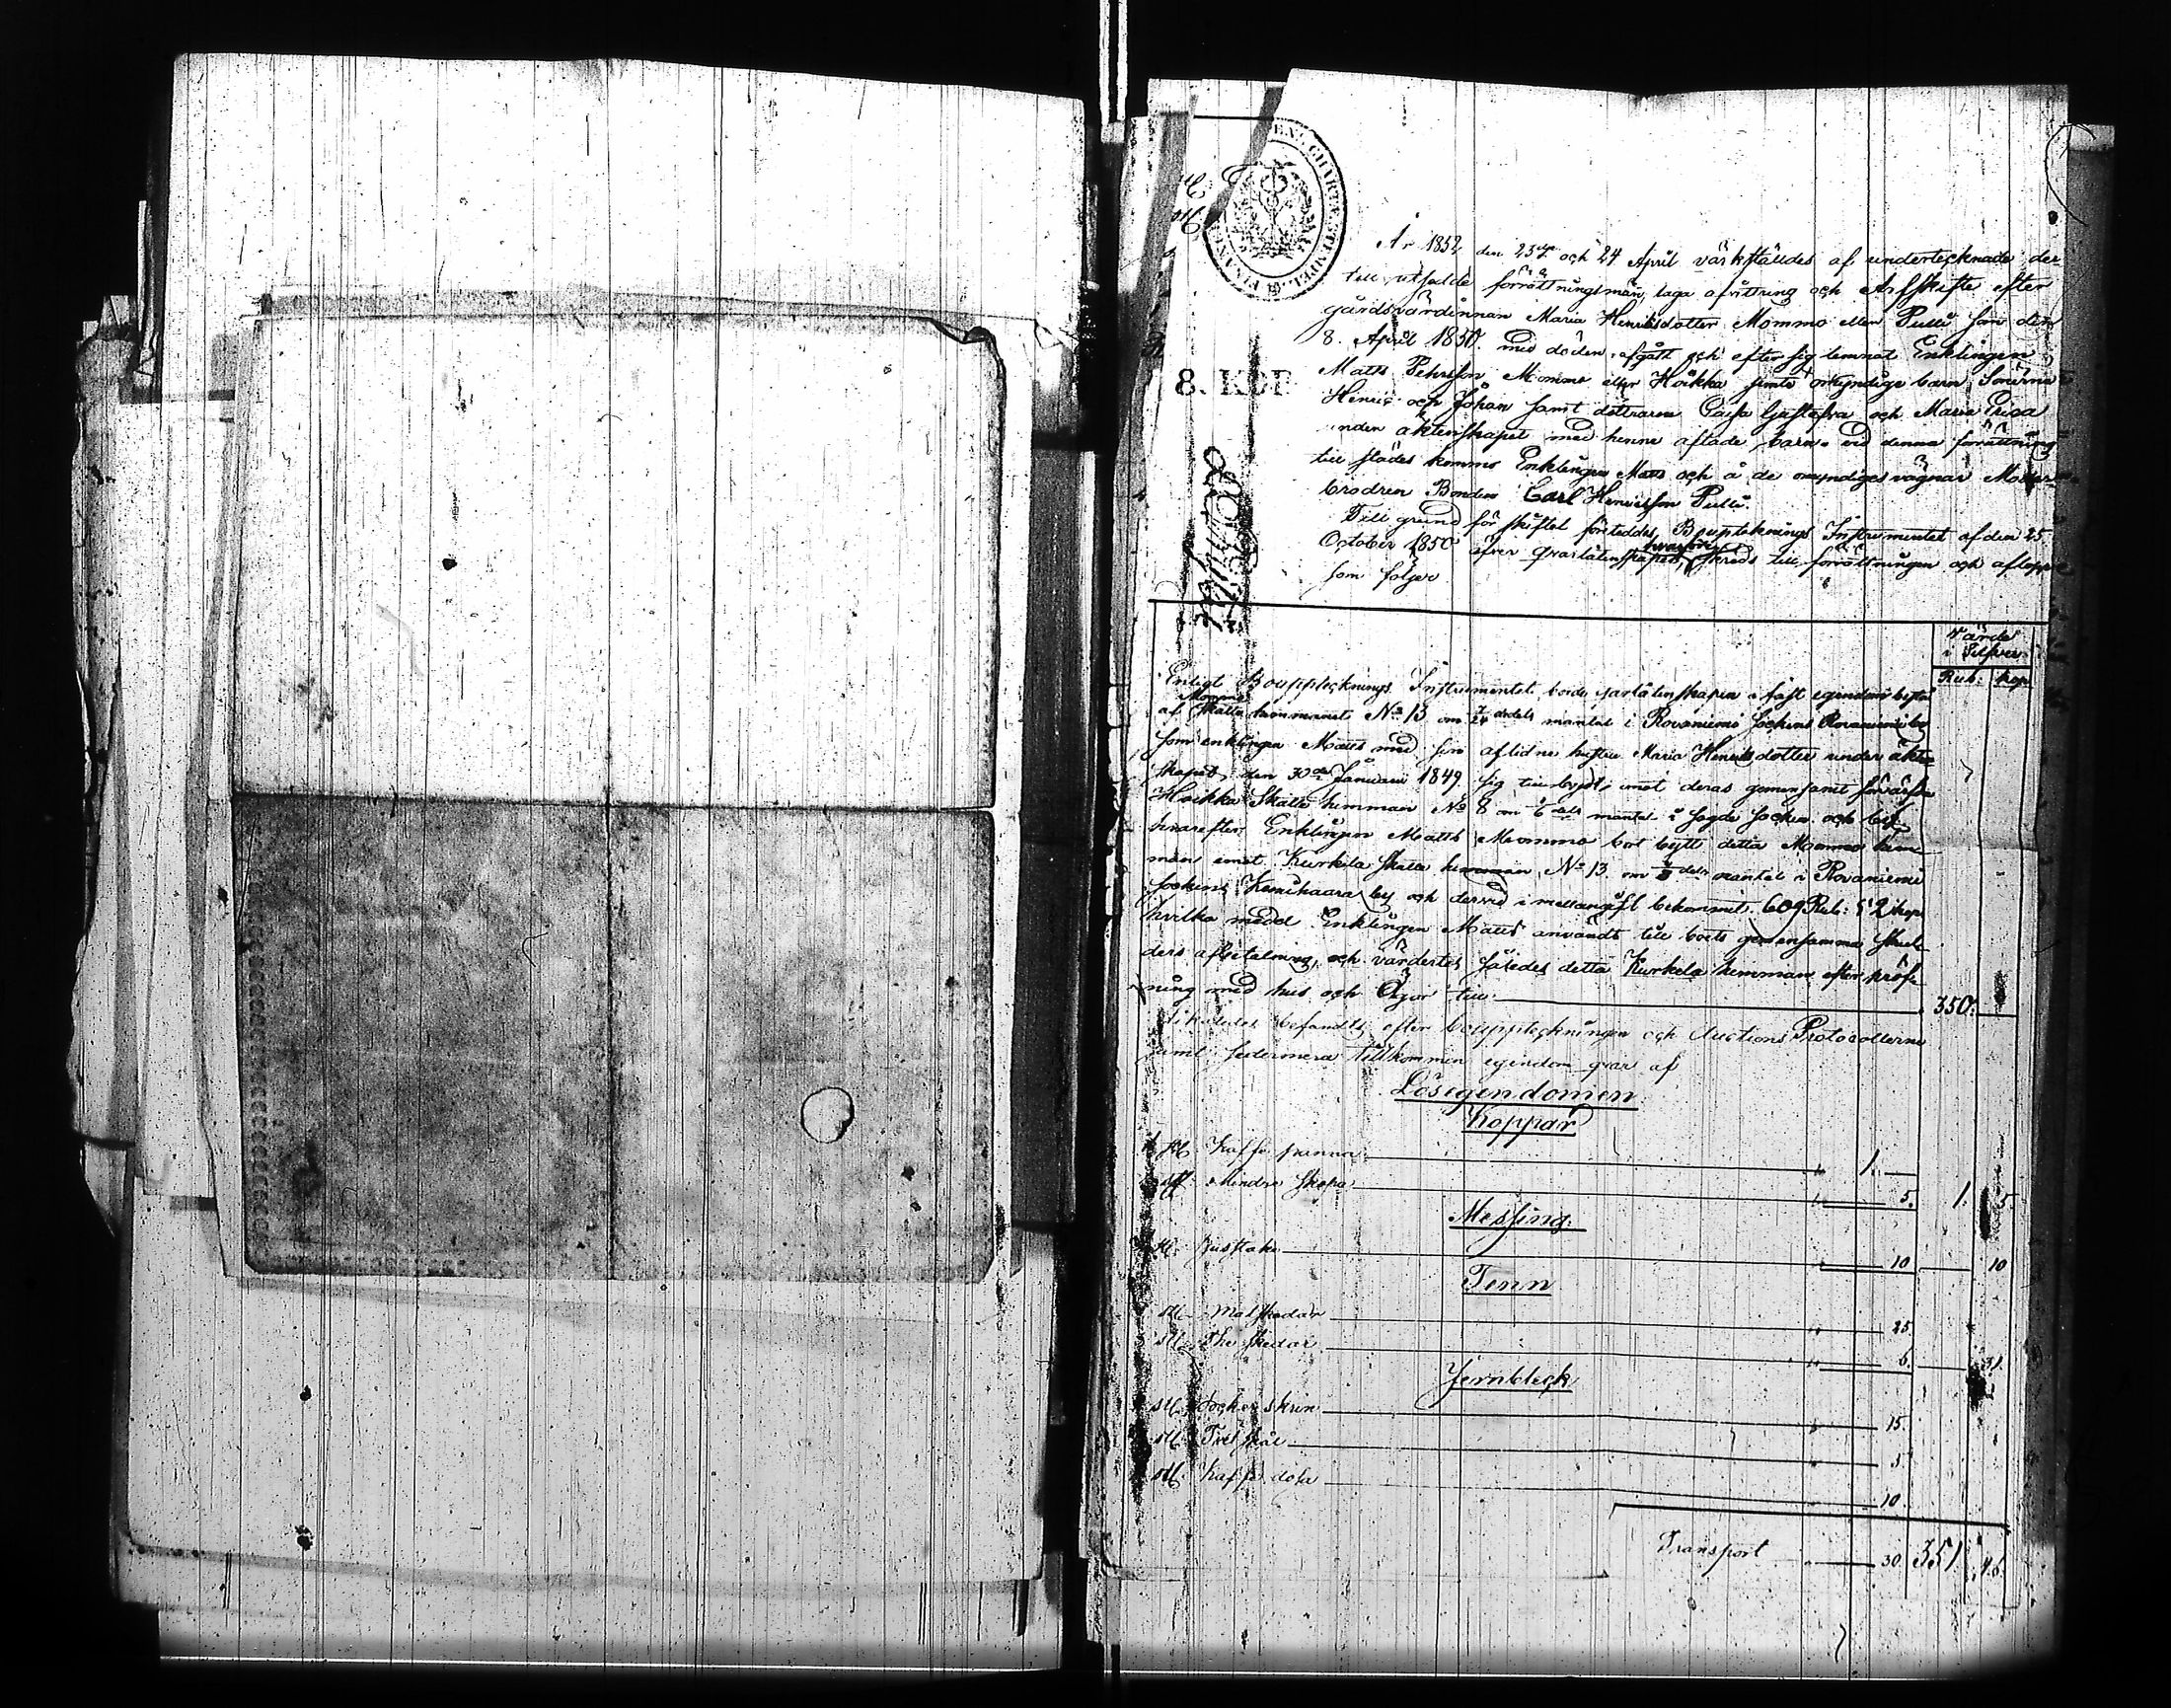 År 1852 den 23dje och 24 April värkställdes af undertecknade der
till utsedde förrättningsmän, laga afvittring och Arfskifte efter
gårdsvärdinnan Maria Henriksdotter Mommo eller Pulli som den
8. April 1850 med döden afgått och efter sig lemnat Enklingen
8. KOP
Matts Pehrsson Mommo eller Hoikka jemte omyndige barn Sönerne
Henric och Johan samt döttrarna Caisa Gustafva och Maria Erica
under äktenskapet med henne aflade barn. vid denna förrättning
till städes kommo Enklingen Matts och å de omyndiges vägnar Moder
brodren Bonden Carl Henriksson Pulli.
Till grund för skiftet företeddes Bouptecknings Instrumentet af den 25
October 1850 öfver qvarlåtenskapen, hvarföre skreds till förrättningen och aflopp
som följer
Värde
i Silfver
Rub: kop
Enligt Bouppteknings Instrumentet bords qvarlåtenskapen i fast egendom bestå
af Mommo Skatte hemmanet No 13 om 7/24 dels mantal i Rovaniemi Sockens Rovaniemi by
som enklingen Matts med sin aflidne hustru Maria Henriksdotter under äkten
skapet, den 30de Januari 1849 sig tillbytt, imot deras gemensamt förvärfda
Hoikka Skatte hemman No 8 om mantal i sagde Socken och by
hvarefter Enklingen Matts Mommo bort bytt detta Mommo hem
man emot Kurkela skatte hemman No 13 om dels mantal i Rovaniemi
Sockens Kemihaara by och dervid i mellangift bekommit 609 Rub: 52 kop
hvilka medel Enklingen Matts användt till boets gemensamma skul
ders afbetalning, och värdertes således detta Kurkela hemman efter pröf
ning med hus och Ägor till 350.
Likaledes befandts efter bouppteckningen och Auctions Protocollerne
samt sedermera tillkommen egendom qvar af
Lösegendomen
Koppar
1 St. Kaffe panna " 1.
St. Mindre skopa " 5. 1. 5
Messing
St. Ljusstake " 10 10
Tenn
St. Matskedar " 25
St. The skedar " 6. 31.
Jernbleck
St. Socker skrin " 15.
St. skål " 5
St. Kaffe dosa 10
Transport 30 351. 46.